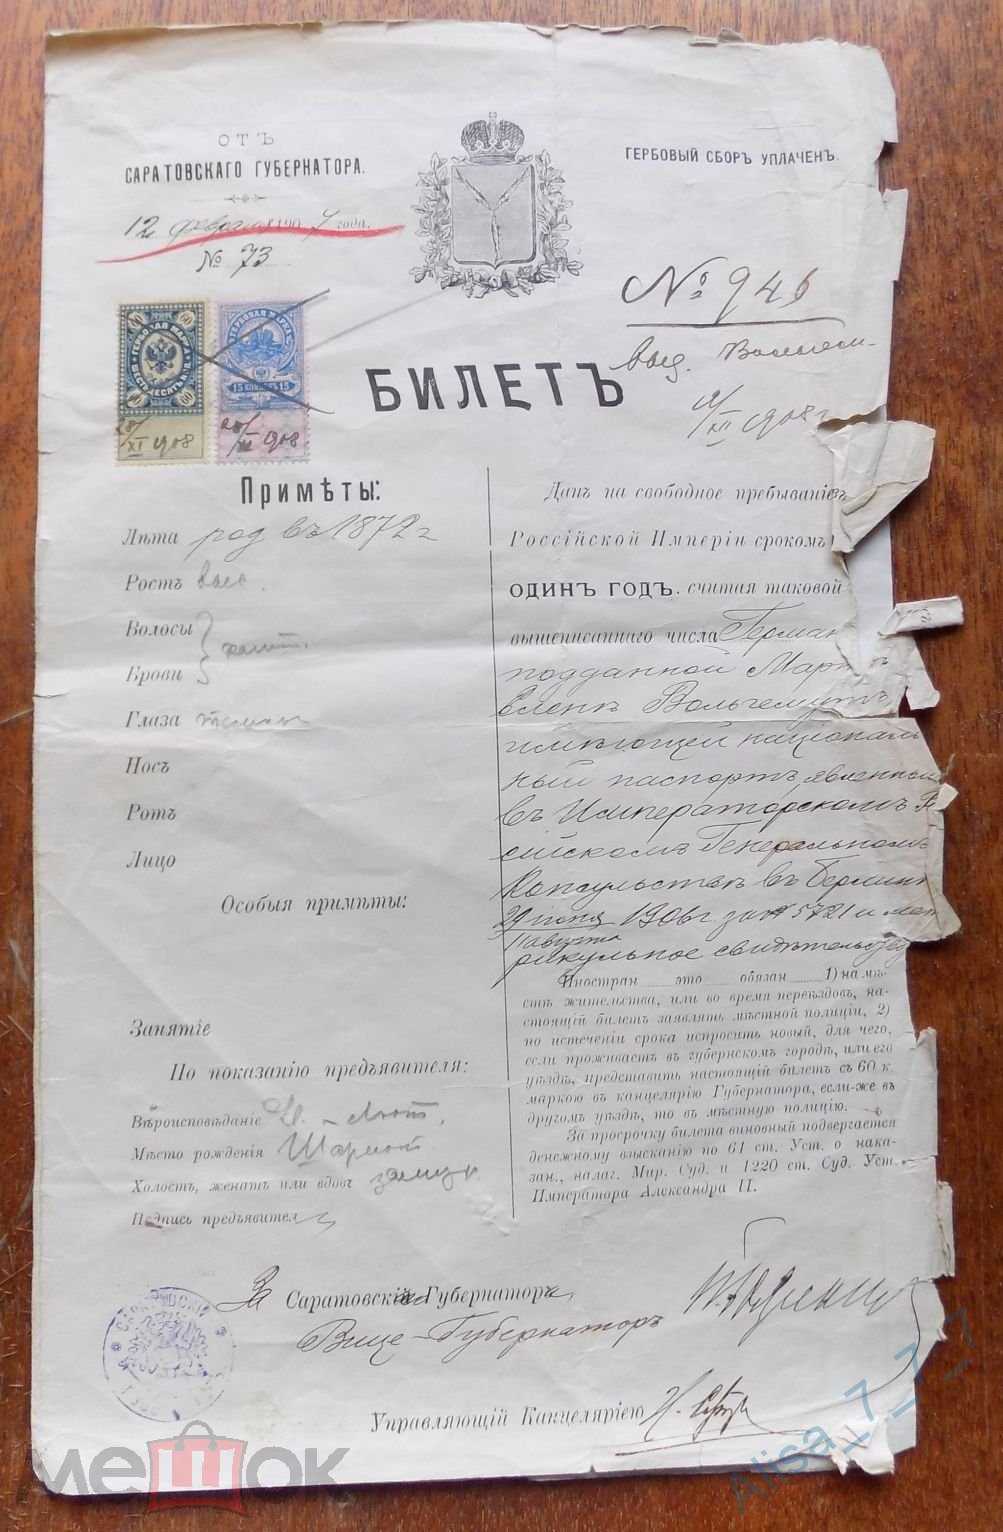 ОТЪ
САРАТОВСКАГО ГУБЕРНАТОРА.
12 февраля 1907 года.
№ 73
ГЕРБОВЫЙ СБОРЪ УПЛАЧЕНЪ.
№ 946
выд.
XI 1908 г
ГЕРБОВАЯ МАРКА
60 60
ШЕСТЬДЕСЯТЪ КОП.
60 60
28/XI 1908
ГЕРБОВАЯ МАРКА
15 КОПѢЕКЪ 15
28/XI 1908
БИЛЕТЪ
Примѣты:
Лѣта род въ 1872 г
Ростъ выс.
Волосы
Брови
Глаза темн
Носъ
Ротъ
Лицо
Особыя примѣты:
Занятіе
По показанію предъявителя:
Вѣроисповѣданіе Ев. - Лют.
Мѣсто рожденія
Холостъ, женатъ или вдовъ замуж
Подпись предъявител
Данъ на свободное пребываніе въ
Россійской Имперіи срокомъ
ОДИНЪ ГОДЪ, считая таковой
вышеписаннаго числа Герман
подданной Март
Вольгемутъ
имѣющей націоналъ
ный паспортъ, явленный
въ Императорскомъ Р
сійскомъ Генеральномъ
Консульствѣ въ Берлинѣ
29 іюня 1906 г. за № 5721 и мат
11 августа
рикульное свидѣтельство
Иностран это обязан 1) на мѣ-
стѣ жительства, или во время переѣздовъ, на-
стоящій билетъ заявлять мѣстной полиціи, 2)
по истеченіи срока испросить новый, для чего,
если проживаетъ въ губернскомъ городѣ, или его
уѣздѣ, представить настоящій билетъ съ 60 к.
маркою въ канцелярію Губернатора, если-же въ
другомъ уѣздѣ, то въ мѣстную полицію.
За просрочку билета виновный подвергается
денежному взысканію по 61 ст. Уст. о нака-
зан., налаг. Мир. Суд. и 1220 ст. Суд. Уст.
Императора Александра II.
За Саратовскій Губернаторъ
Вице-Губернаторъ
Управляющій Канцеляріею
САРАТОВСКІЙ
мешок
Alisa_7_7_7